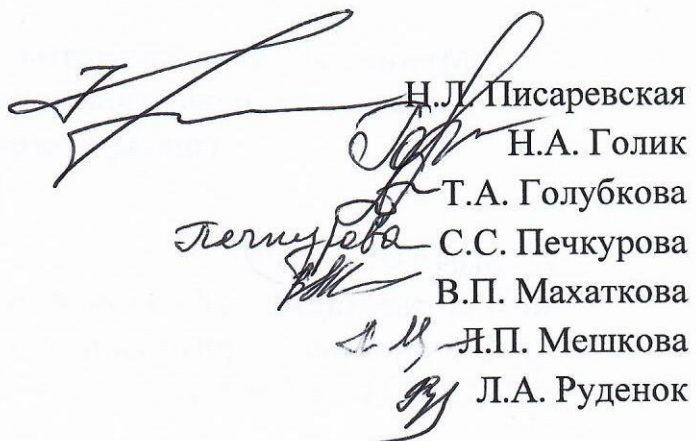 Н.Л. Писаревская
Н.А. Голик
Т.А. Голубкова
Печкурова С.С. Печкурова
В.П. Махаткова
Л.П. Мешкова
Л.А. Руденок